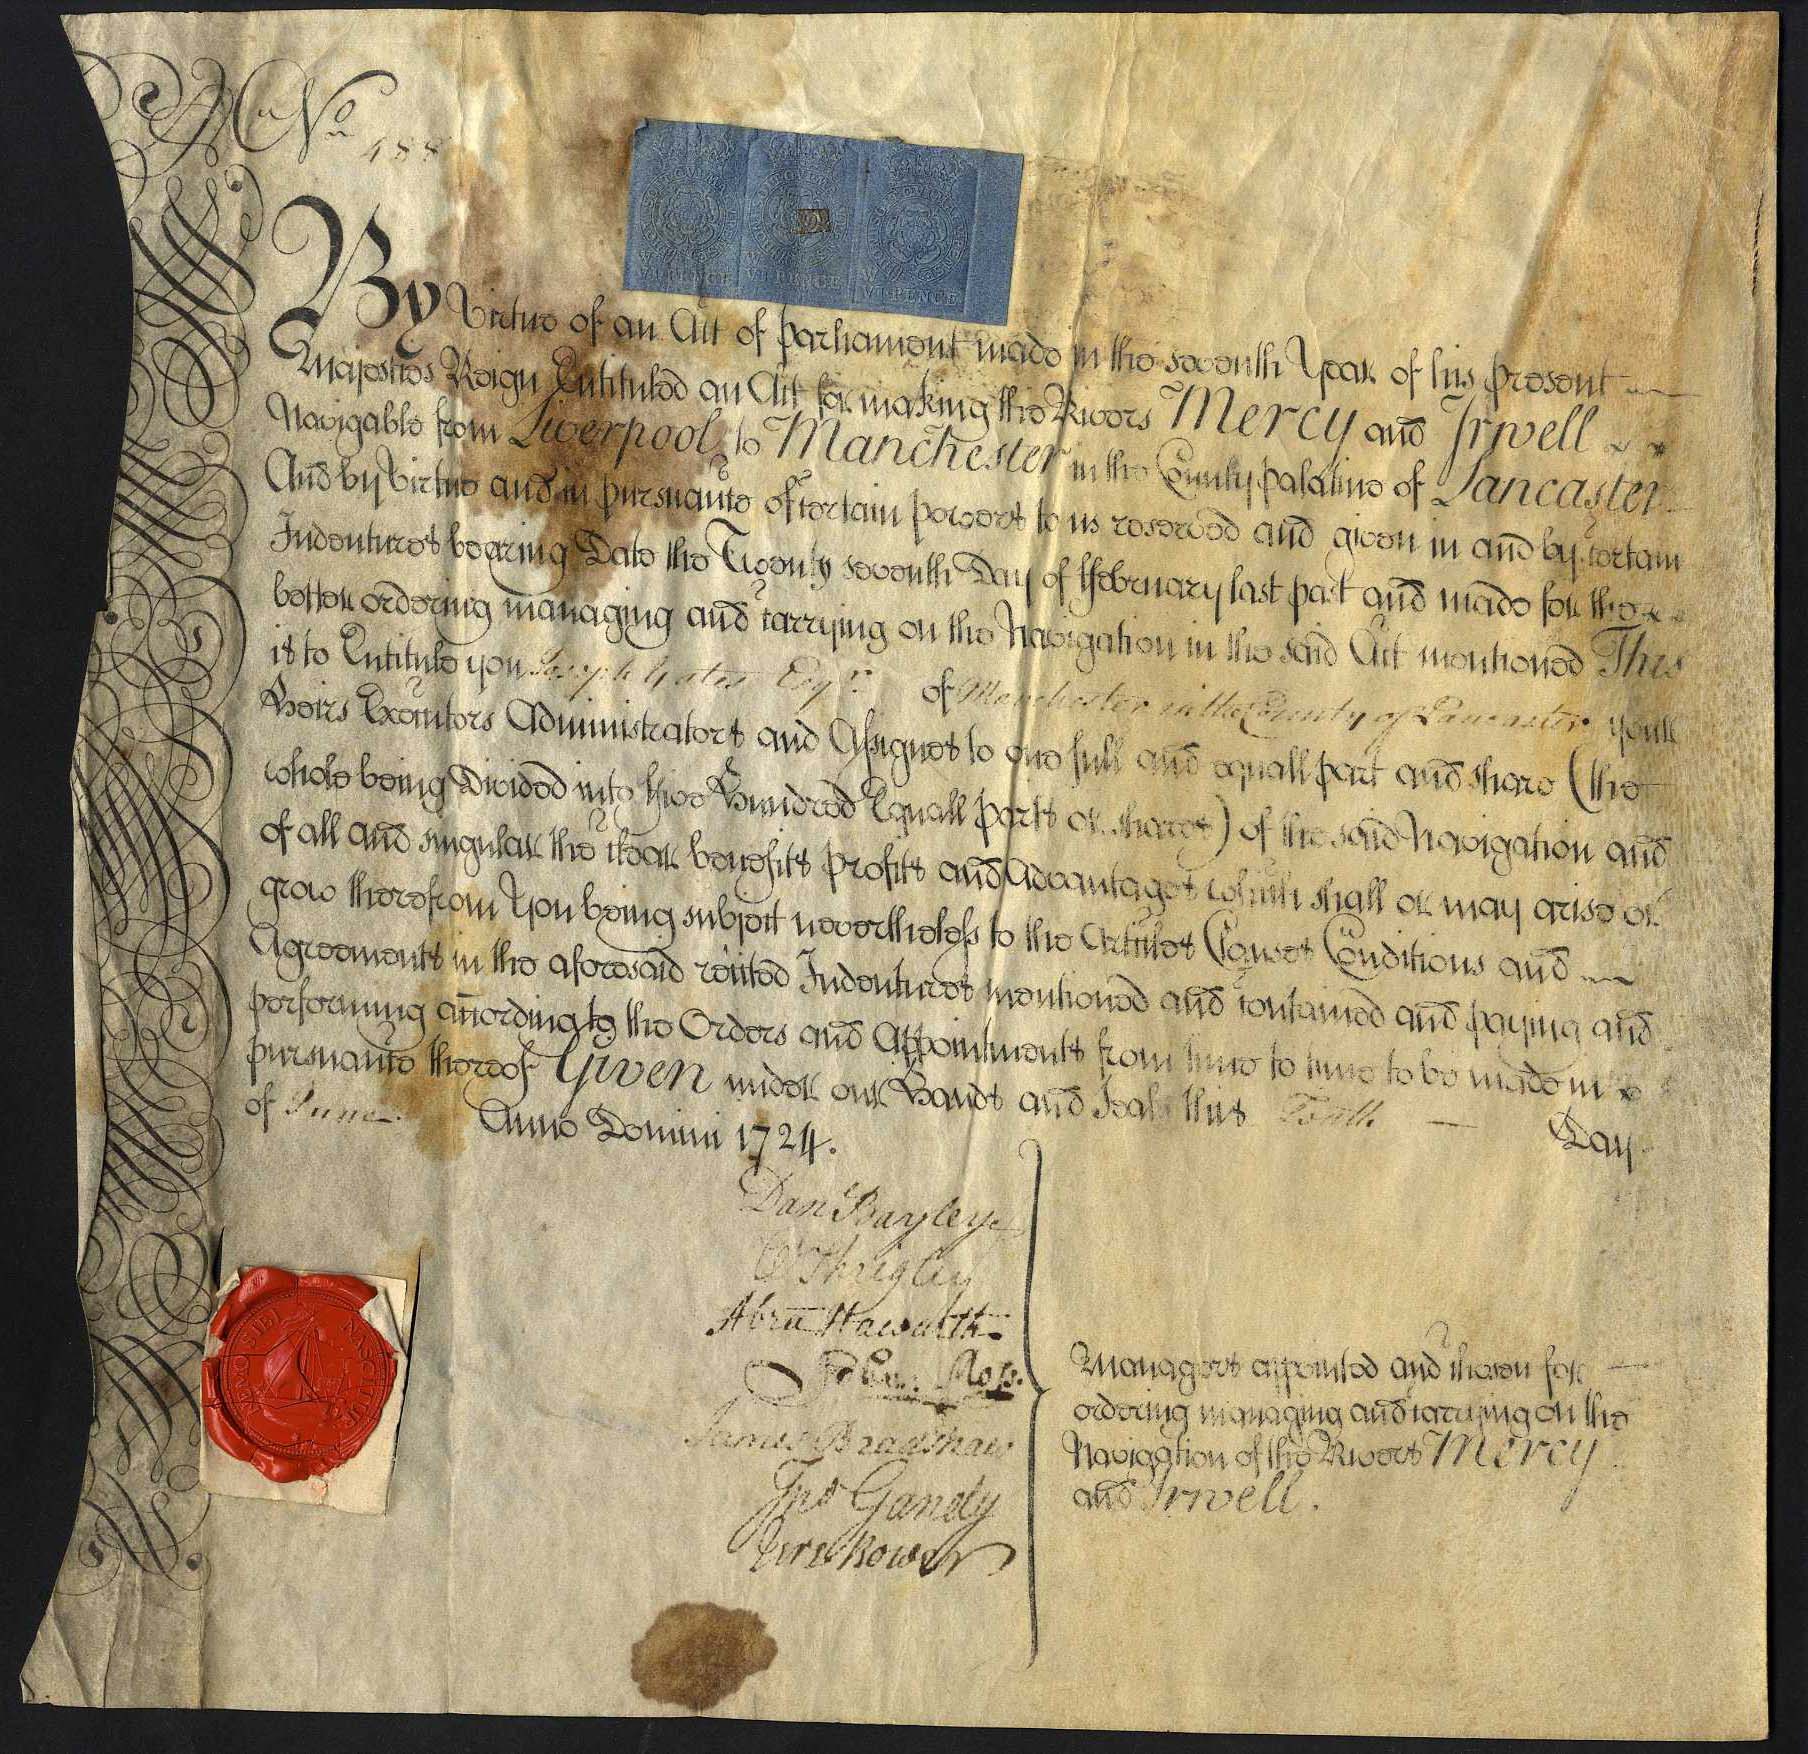 No 488
VI PENCE VI PENCE VI PENCE
By Virtue of an Act of Parliament made in the seventh Year of his present
Majesties Reign Entituled an Act for making the Rivers Mercy and Irwell
Navigable from Liverpool to Manchester in the County palatine of Lancaster
And by Virtue and in pursuance of certain powers to us reserved and given in and by certain
Indentures bearing Date the Twenty seventh Day of ffebruary last past and made for the
better ordering managing and carrying on the Navigation in the said Act mentioned This
is to Entitule you Joseph Yates Esqr. of Manchester in the County of Lancaster your
Heirs Executors Administrators and Assignes to one full and equall part and share (the
whole being Divided into five Hundred Equall parts or shares) of the said Navigation and
of all and singular the clear benefits profits and Advantages which shall or may arise or
grow therefrom You being subject nevertheless to the Articles Clauses Conditions and
Agreements in the aforesaid recited Indentures mentioned and contained and paying and
performing according to the Orders and Appointments from time to time to be made in
pursuance thereof Given under our Hands and Seals this Tenth Day
of June Anno Domini 1724.
Danl Bayley
Shrigley
Abrm Haworth
John Ross.
James Bradshaw
Jno Gandy
Jere Bower
Managers appointed and chosen for
ordering managing and carrying on the
Navigation of the Rivers Mercy
and Irwell.
NEMO SIBI NASCITUR